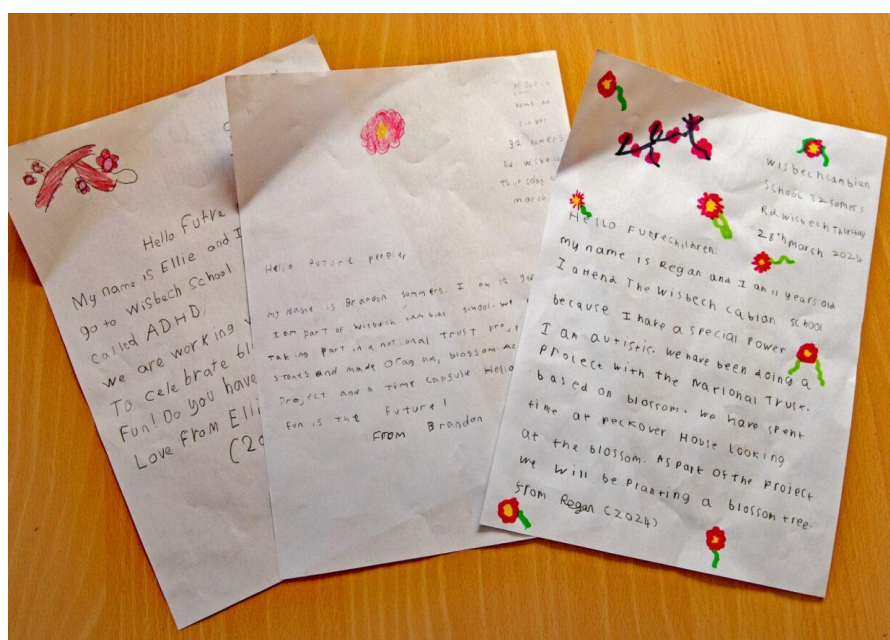 Hello Futre
My name is Ellie and I
go to Wisbech School
called ADHD.
we are working
To celebrate
Fun! Do you have
Love From Elli
(20
32 somers
march
Hello Future people,
my name is Brandon summers. I am 12
I am part of Wisbech school. we
taking part in a national Trust
and made blossom.
Project and a time capsule
fun is the future!
From Brandon
wisbech cambian
School 32 somers
Rd wisbech Thursday
28th march 2024
Hello Futrechildren.
my name is Regan and I am 11 years old
I attend The wisbech cabian school
because I have a special power
I am autistic. we have been doing a
project with the National Trust.
based on blossom. we have spent
time at peckover House looking
at the blossom. As part of the project
we will be planting a blossom tree.
From Regan (2024)